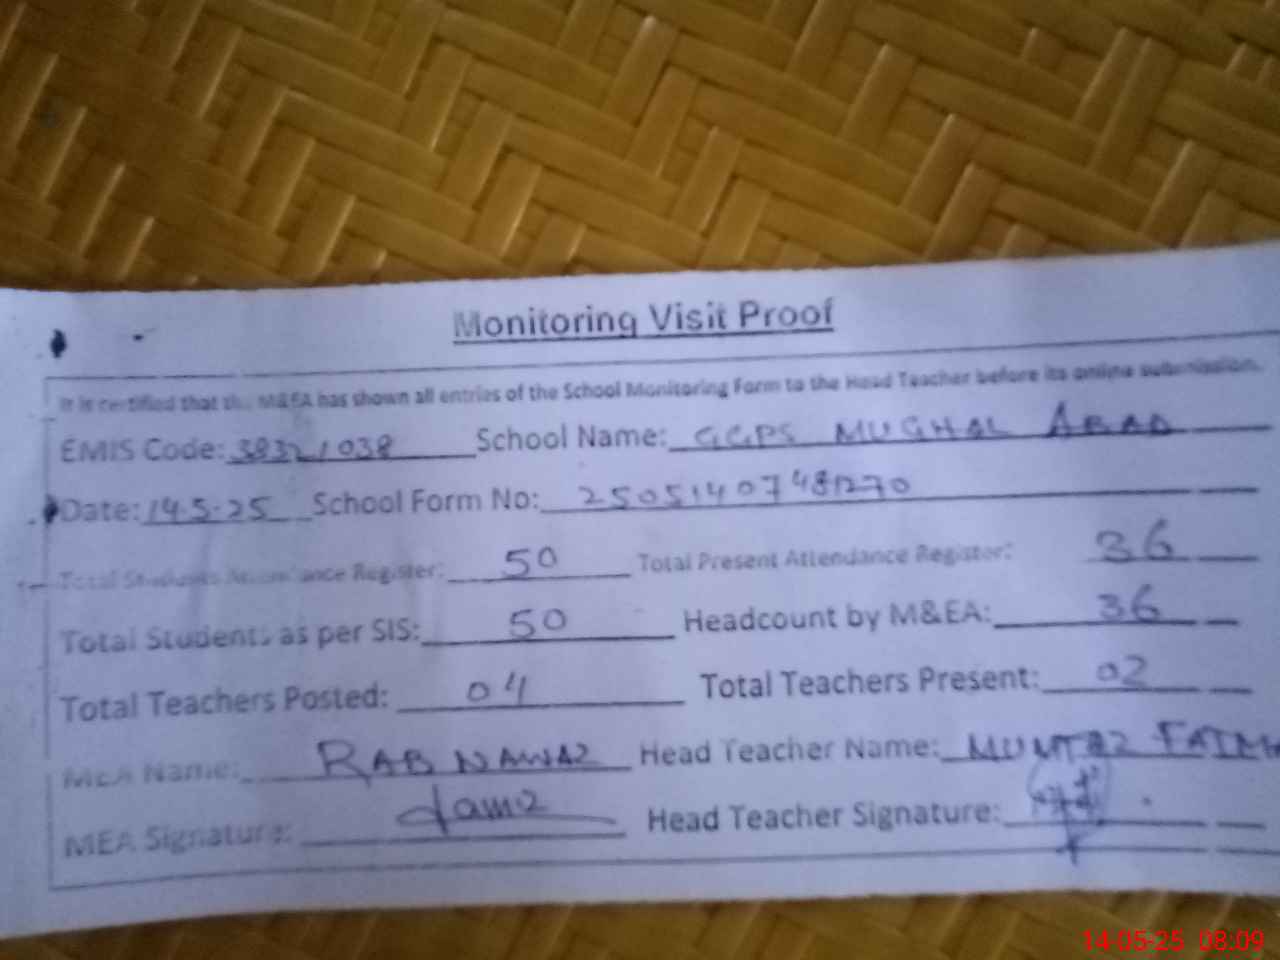 Monitoring Visit Proof
It is certified that the M&EA has shown all entries of the School Monitoring Form to the Head Teacher before its online submission.
EMIS Code: 38321038 School Name: GGPS MUGHAL ABAD
Date: 14-5-25 School Form No: 2505140748
Total Students Attendance Register: 50 Total Present Attendance Register: 36
Total Students as per SIS: 50 Headcount by M&EA: 36
Total Teachers Posted: 04 Total Teachers Present: 02
MEA Name: RAB NAWAZ Head Teacher Name: MUMTAZ FATIM
MEA Signature: Head Teacher Signature:
14-05-25 08:09